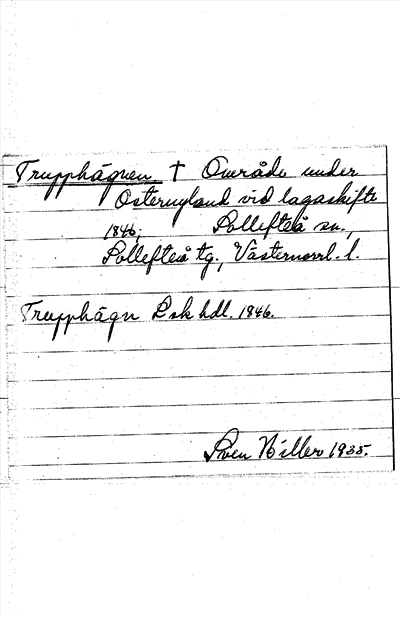 Trupphägnen † Område under
Östernyland vid lagaskifte
1846; Sollefteå sn.,
Sollefteå tg., Västernorrl. l.
Trupphägn Lsk hdl. 1846.
Sven 1935.